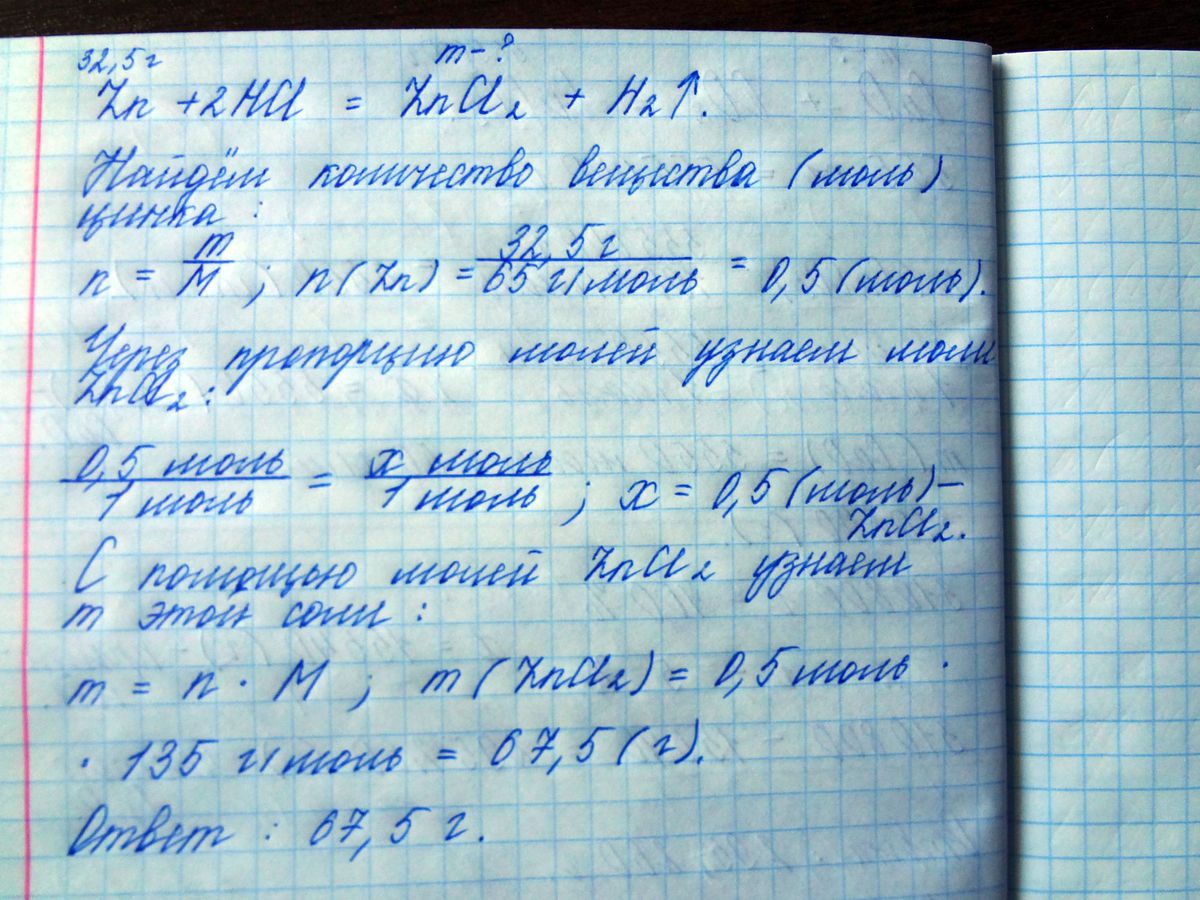 32,5 г m - ?
Zn + 2HCl = ZnCl₂ + H₂↑.
Найдём количество вещества (моль)
цинка :
n = m/M ; n (Zn) = 32,5 г/65 г/моль = 0,5 (моль).
Через пропорцию молей узнаем моли
ZnCl₂ :
0,5 моль/1 моль = x моль/1 моль ; x = 0,5 (моль) –
ZnCl₂.
С помощью молей ZnCl₂ узнаем
m этой соли :
m = n · M ; m (ZnCl₂) = 0,5 моль ·
· 135 г/моль = 67,5 (г).
Ответ : 67,5 г.